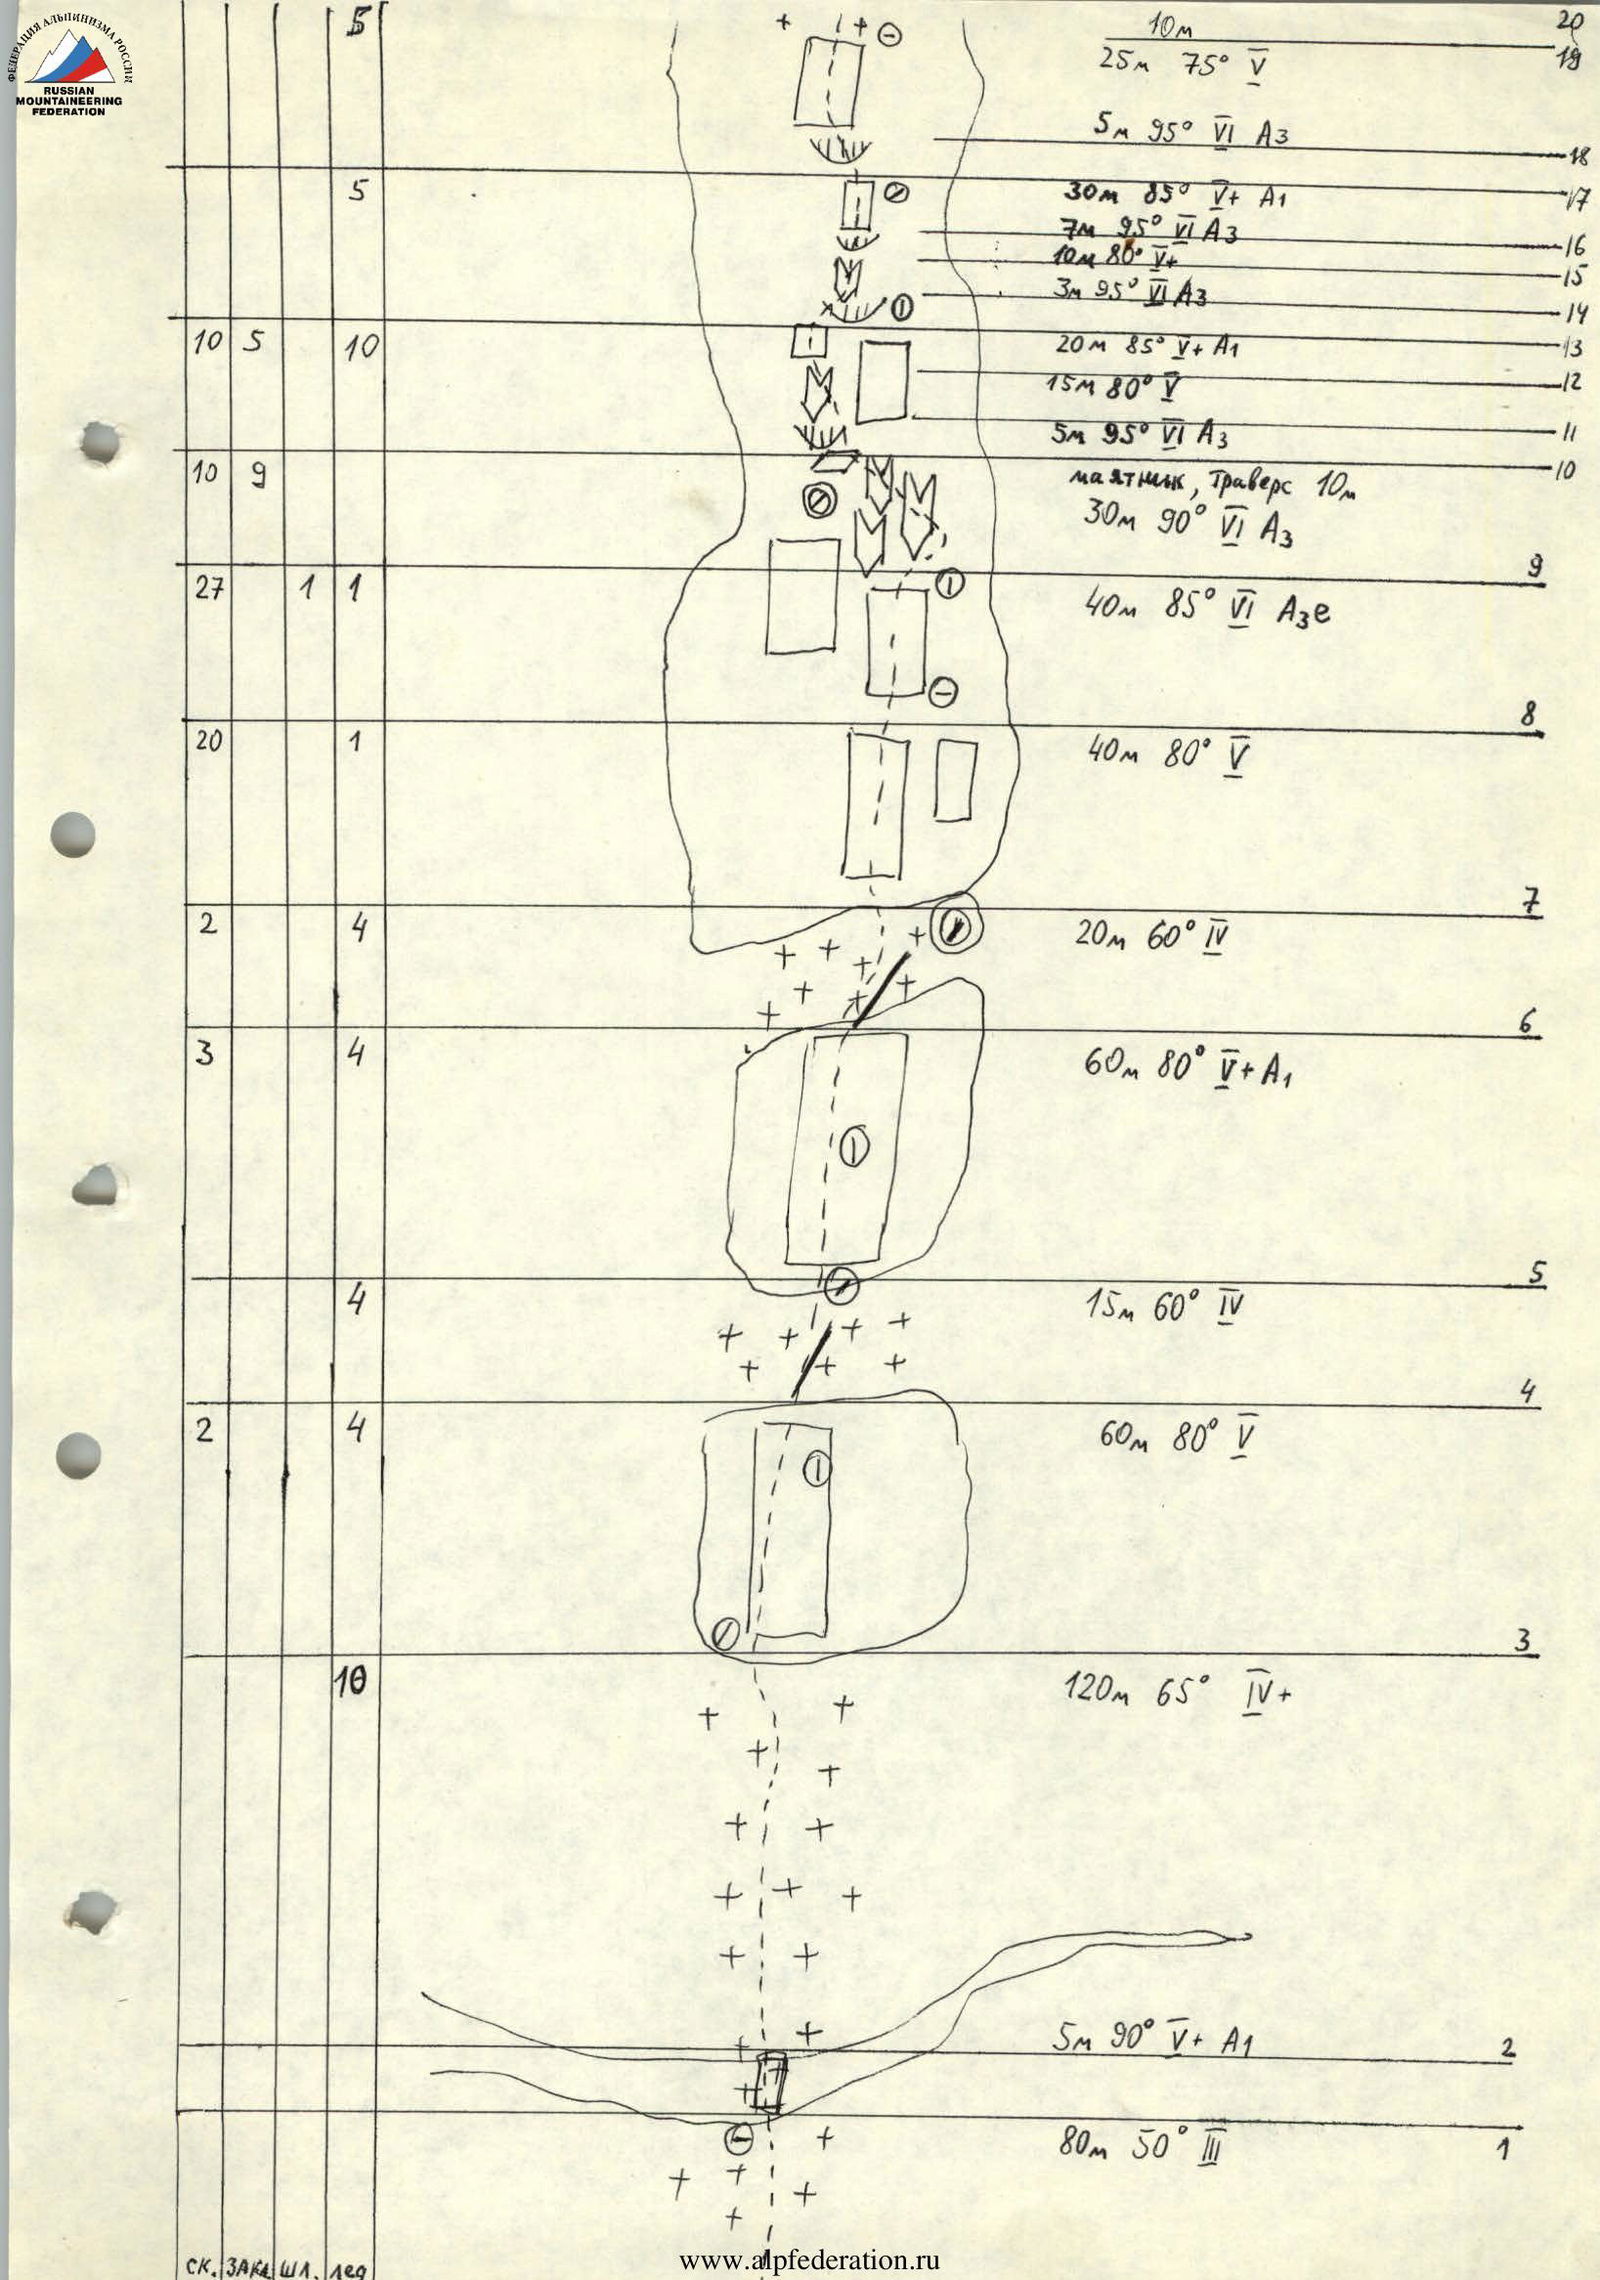 ФЕДЕРАЦИЯ АЛЬПИНИЗМА РОССИИ
RUSSIAN
MOUNTAINEERING
FEDERATION
5 10м 20
25м 75° V 19
5м 95° VI A3 18
5 30м 85° V+ A1 17
7м 95° VI A3 16
10м 80° V+ 15
3м 95° VI A3 14
10 5 10 20м 85° V+ A1 13
15м 80° V 12
5м 95° VI A3 11
10 9 маятник, траверс 10м 10
30м 90° VI A3
27 1 1 40м 85° VI A3e 9
20 1 40м 80° V 8
2 4 20м 60° IV 7
3 4 60м 80° V+ A1 6
4 15м 60° IV 5
2 4 60м 80° V 4
10 120м 65° IV+ 3
5м 90° V+ A1 2
80м 50° III 1
СК. ЗАКЛ ШЛ. лед
www.alpfederation.ru